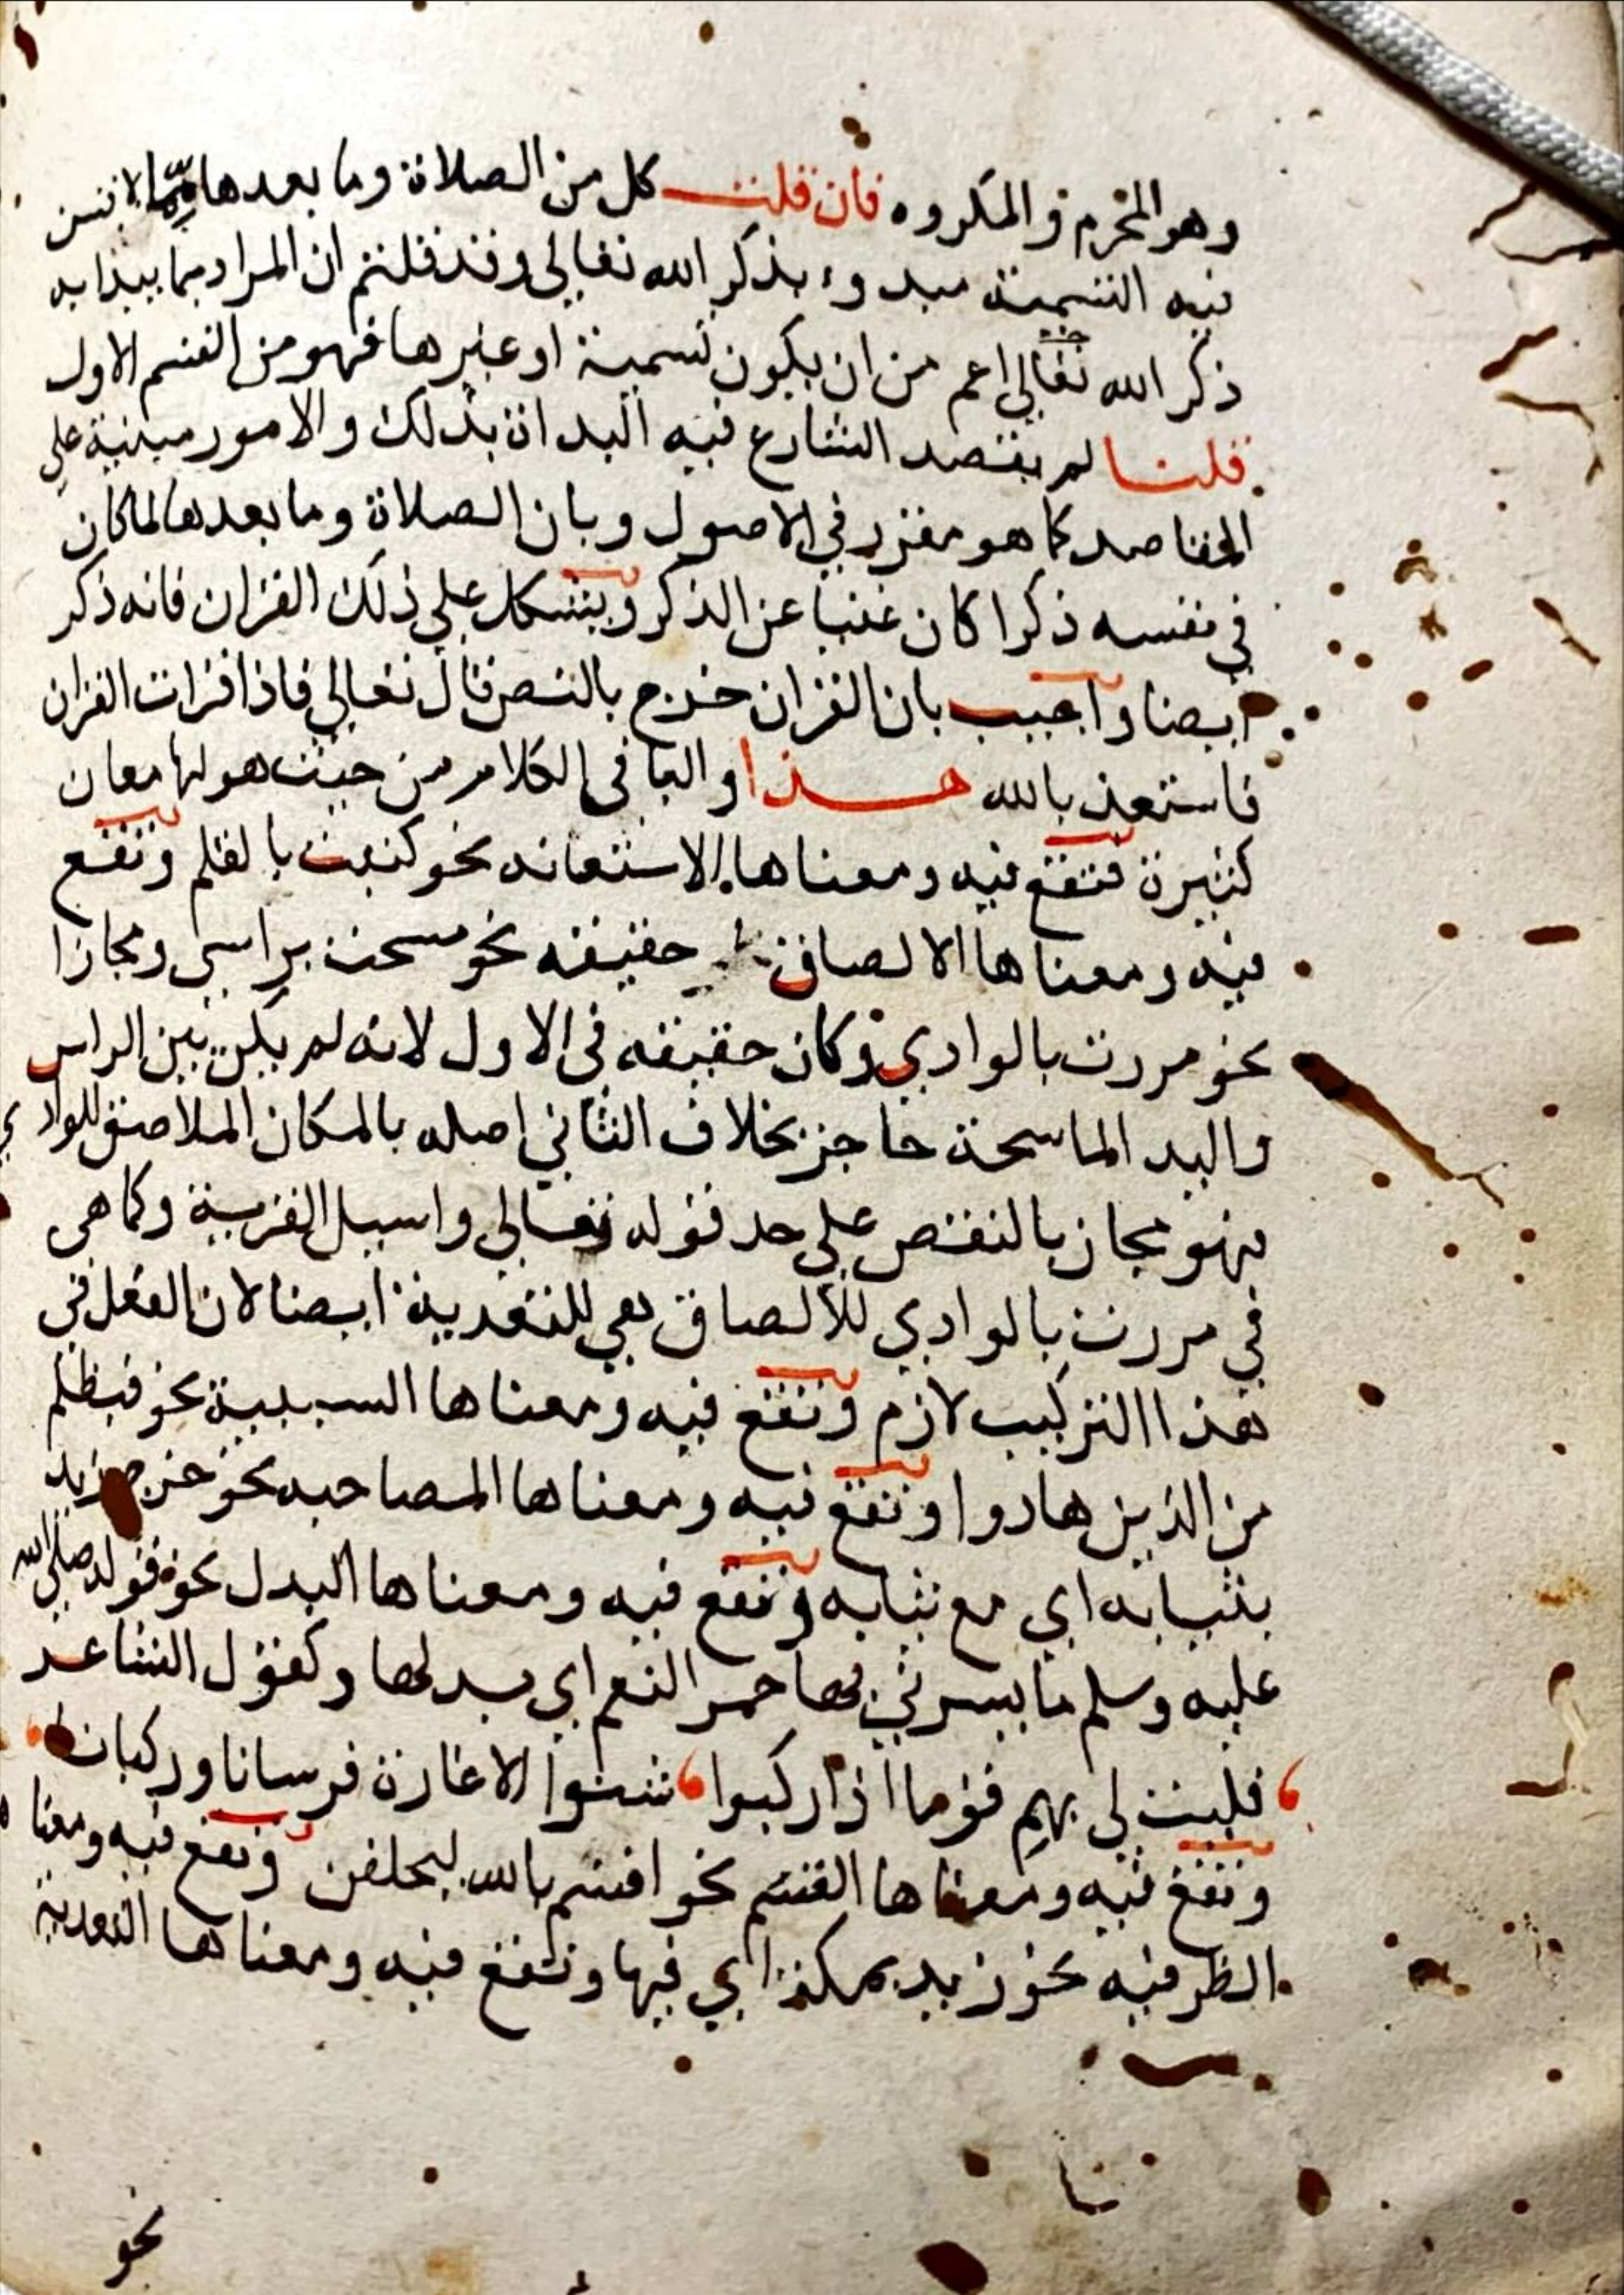 وهو المحرم والمكروه فان قلت كل من الصلاة وما بعدها مما لا تسن
فيه التسمية مبدوء بذكر الله تعالى وقد قلتم ان المراد بما يبدا به
ذكر الله تعالى اعم من ان يكون تسمية او غيرها فهو من القسم الاول
قلنا لم يقصد الشارع فيه البداة بذلك والامور مبنية على
المقاصد كما هو مقرر في الاصول وبان الصلاة وما بعدها لما كان
في نفسه ذكرا كان غنيا عن الذكر ويشكل على ذلك القران فانه ذكر
ايضا واجيب بان القران خرج بالنص قال تعالى فاذا قرات القران
فاستعذ بالله هذا والبا في الكلام من حيث هو لها معان
كثيرة فتقع فيه ومعناها الاستعانه نحو كتبت بالقلم وتقع
فيه ومعناها الالصاق حقيقه نحو مسحت براسي ومجازا
نحو مررت بالوادي وكان حقيقه في الاول لانه لم يكن بين الراس
واليد الماسحة حاجز بخلاف الثاني اصله بالمكان الملاصق للوادي
فهو مجاز بالنقص على حد قوله تعالى واسيل القرية وكما هي
في مررت بالوادي للالصاق هي للتعدية ايضا لان الفعل في
هذا التركيب لازم وتقع فيه ومعناها السببية نحو فبظلم
من الذين هادوا وتقع فيه ومعناها المصاحبه نحو خرج زيد
بثيابه اي مع ثيابه وتقع فيه ومعناها البدل نحو قوله صلى الله
عليه وسلم ما يسرني بها حمر النعم اي بدلها وكقول الشاعر
فليت لي بهم قوما اذا ركبوا شنوا الاغارة فرسانا وركبانا
وتقع فيه ومعناها القسم نحو اقسم بالله ليحلفن وتقع فيه ومعناه
الظرفيه نحو زيد بمكة اي فيها وتقع فيه ومعناها التعدية
نحو